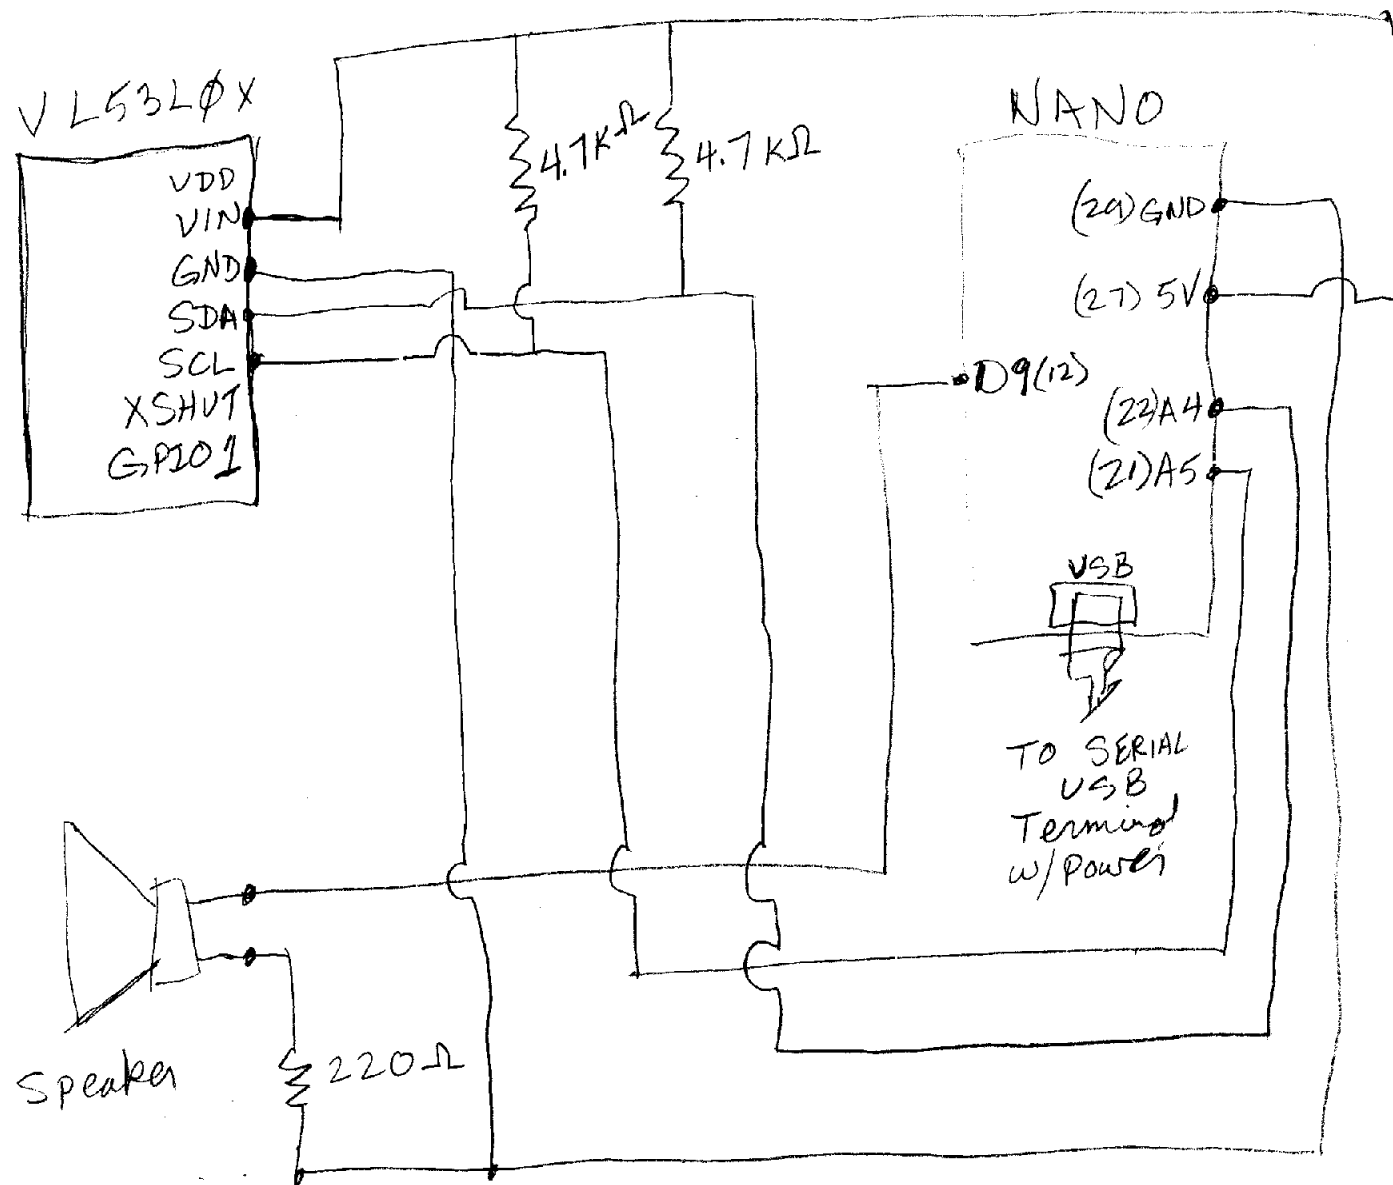 VL53LØX
VDD
VIN
GND
SDA
SCL
XSHUT
GPIO1
4.7KΩ
4.7KΩ
NANO
(29)GND
(27)5V
D9(12)
(23)A4
(21)A5
USB
TO SERIAL
USB
Terminal
w/Power
Speaker
220Ω